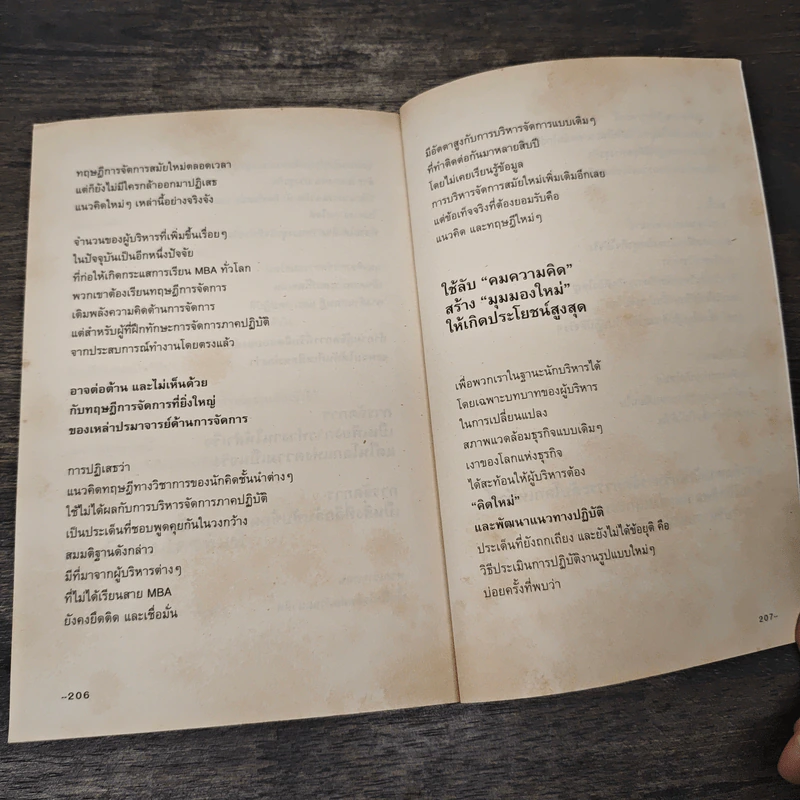 ทฤษฎีการจัดการสมัยใหม่ตลอดเวลา
แต่ก็ยังไม่มีใครกล้าออกมาปฏิเสธ
แนวคิดใหม่ๆ เหล่านี้อย่างจริงจัง
จำนวนของผู้บริหารที่เพิ่มขึ้นเรื่อยๆ
ในปัจจุบันเป็นอีกหนึ่งปัจจัย
ที่ก่อให้เกิดกระแสการเรียน MBA ทั่วโลก
พวกเขาต้องเรียนทฤษฎีการจัดการ
เติมพลังความคิดด้านการจัดการ
แต่สำหรับผู้ที่ฝึกทักษะการจัดการภาคปฏิบัติ
จากประสบการณ์ทำงานโดยตรงแล้ว
อาจต่อต้าน และไม่เห็นด้วย
กับทฤษฎีการจัดการที่ยิ่งใหญ่
ของเหล่าปรมาจารย์ด้านการจัดการ
การปฏิเสธว่า
แนวคิดทฤษฎีทางวิชาการของนักคิดชั้นนำต่างๆ
ใช้ไม่ได้ผลกับการบริหารจัดการภาคปฏิบัติ
เป็นประเด็นที่ชอบพูดคุยกันในวงกว้าง
สมมติฐานดังกล่าว
มีที่มาจากผู้บริหารต่างๆ
ที่ไม่ได้เรียนสาย MBA
ยังคงยึดติด และเชื่อมั่น
~206
มีอัตตาสูงกับการบริหารจัดการแบบเดิมๆ
ที่ทำติดต่อกันมาหลายสิบปี
โดยไม่เคยเรียนรู้ข้อมูล
การบริหารจัดการสมัยใหม่เพิ่มเติมอีกเลย
แต่ข้อเท็จจริงที่ต้องยอมรับคือ
แนวคิด และทฤษฎีใหม่ๆ
ใช้ลับ “คมความคิด”
สร้าง “มุมมองใหม่”
ให้เกิดประโยชน์สูงสุด
เพื่อพวกเราในฐานะนักบริหารได้
โดยเฉพาะบทบาทของผู้บริหาร
ในการเปลี่ยนแปลง
สภาพแวดล้อมธุรกิจแบบเดิมๆ
เงาของโลกแห่งธุรกิจ
ได้สะท้อนให้ผู้บริหารต้อง
“คิดใหม่”
และพัฒนาแนวทางปฏิบัติ
ประเด็นที่ยังถกเถียง และยังไม่ได้ข้อยุติ คือ
วิธีประเมินการปฏิบัติงานรูปแบบใหม่ๆ
บ่อยครั้งที่พบว่า
207~